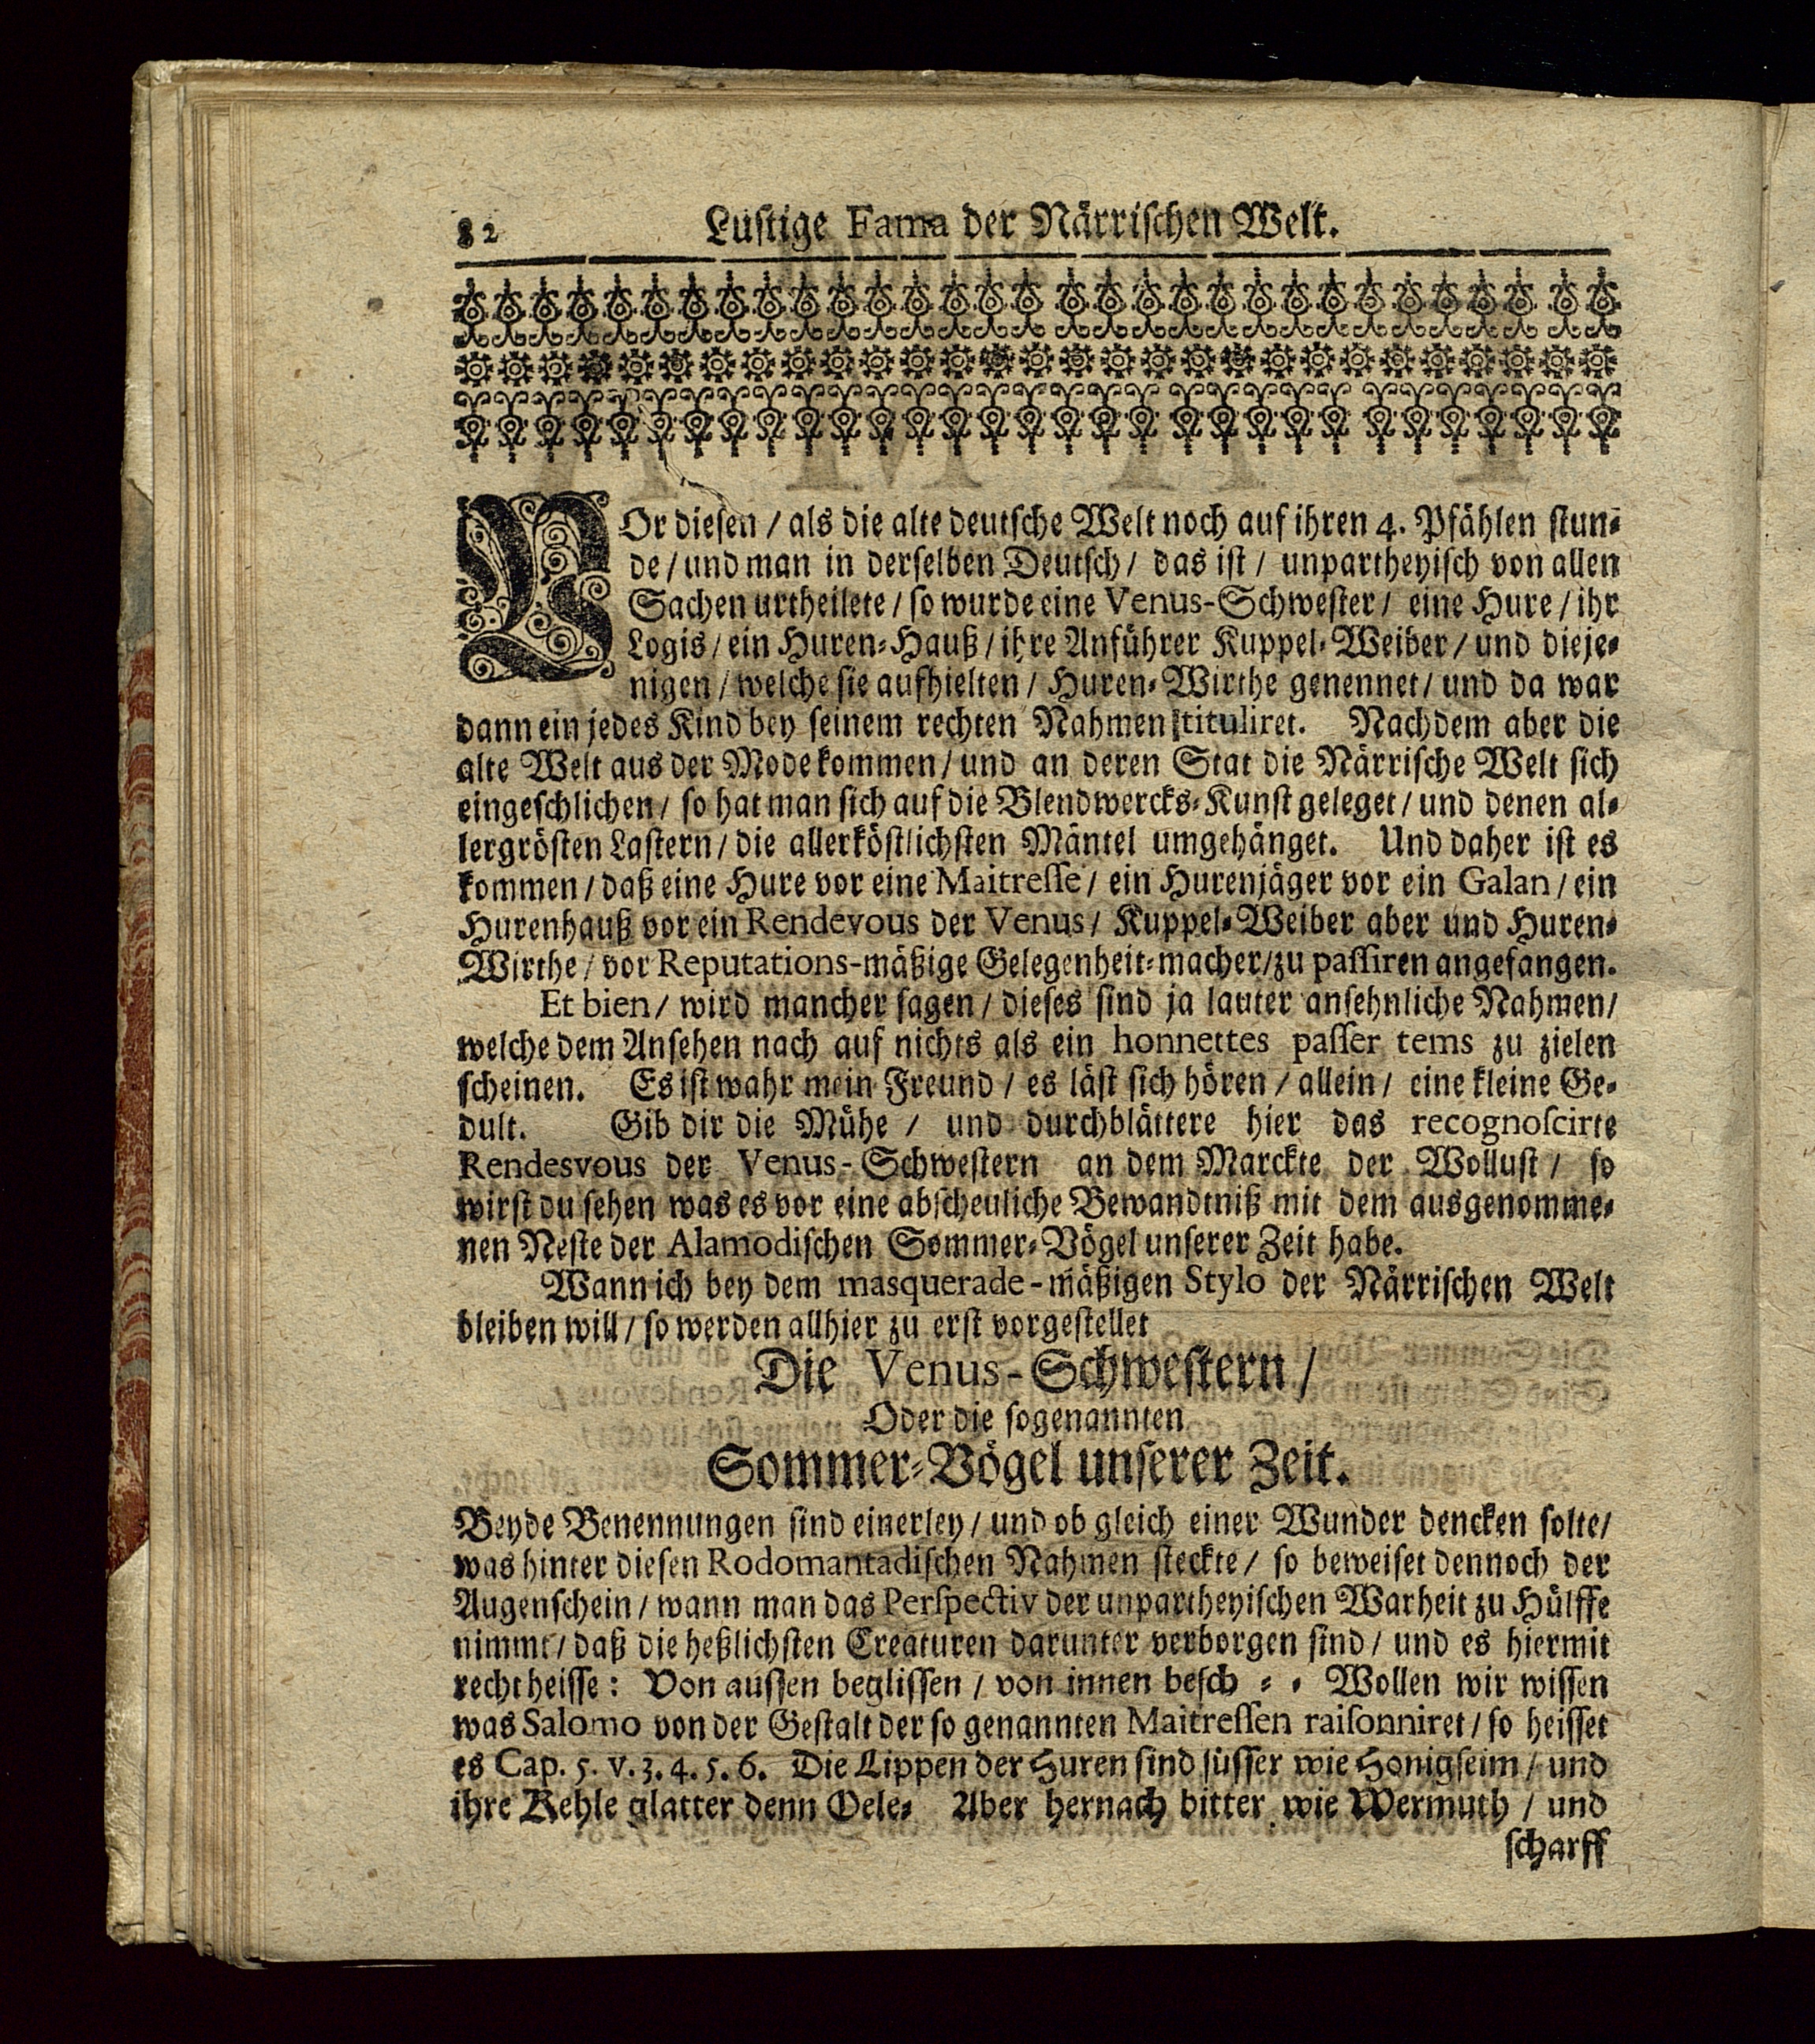 82 Lustige Fama der Närrischen Welt.
VOr diesen / als die alte deutsche Welt noch auf ihren 4. Pfählen stun-
de / und man in derselben Deutsch / das ist / unpartheyisch von allen
Sachen urtheilete / so wurde eine Venus-Schwester / eine Hure / ihr
Logis / ein Huren-Hauß / ihre Anführer Kuppel-Weiber / und dieje-
nigen / welche sie aufhielten / Huren-Wirthe genennet / und da war
dann ein jedes Kind bey seinem rechten Nahmen tituliret. Nachdem aber die
alte Welt aus der Mode kommen / und an deren Stat die Närrische Welt sich
eingeschlichen / so hat man sich auf die Blendwercks-Kunst geleget / und denen al-
lergrösten Lastern / die allerköstlichsten Mäntel umgehänget. Und daher ist es
kommen / daß eine Hure vor eine Maitresse / ein Hurenjäger vor ein Galan / ein
Hurenhauß vor ein Rendevous der Venus / Kuppel-Weiber aber und Huren-
Wirthe / vor Reputations-mäßige Gelegenheit-macher / zu passiren angefangen.
Et bien / wird mancher sagen / dieses sind ja lauter ansehnliche Nahmen /
welche dem Ansehen nach auf nichts als ein honnettes passer tems zu zielen
scheinen. Es ist wahr mein Freund / es läst sich hören / allein / eine kleine Ge-
dult. Gib dir die Mühe / und durchblättere hier das recognoscirte
Rendesvous der Venus-Schwestern an dem Marckte der Wollust / so
wirst du sehen was es vor eine abscheuliche Bewandtniß mit dem ausgenomme-
nen Neste der Alamodischen Sommer-Vögel unserer Zeit habe.
Wann ich bey dem masquerade-mäßigen Stylo der Närrischen Welt
bleiben will / so werden allhier zu erst vorgestellet
Die Venus-Schwestern /
Oder die sogenannten
Sommer-Vögel unserer Zeit.
Beyde Benennungen sind einerley / und ob gleich einer Wunder dencken solte /
was hinter diesen Rodomantadischen Nahmen steckte / so beweiset dennoch der
Augenschein / wann man das Perspectiv der unpartheyischen Warheit zu Hülffe
nimmt / daß die heßlichsten Creaturen darunter verborgen sind / und es hiermit
recht heisse: Von aussen beglissen / von innen besch - - Wollen wir wissen
was Salomo von der Gestalt der so genannten Maitressen raisonniret / so heisset
es Cap. 5. v. 3. 4. 5. 6. Die Lippen der Huren sind süsser wie Honigseim / und
ihre Kehle glatter denn Oele- Aber hernach bitter wie Wermuth / und
scharff